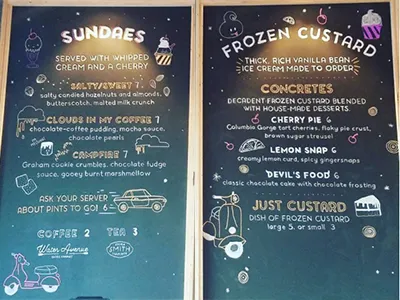 SUNDAES
SERVED WITH WHIPPED
CREAM AND A CHERRY
SALTY/SWEET 7
salty candied hazelnuts and almonds,
butterscotch, malted milk crunch
CLOUDS IN MY COFFEE 7
chocolate-coffee pudding, mocha sauce,
chocolate pearls
CAMPFIRE 7
Graham cookie crumbles, chocolate fudge
sauce, gooey burnt marshmellow
ASK YOUR SERVER
ABOUT PINTS TO GO! 6
COFFEE 2 TEA 3
Water Avenue
SMITH
FROZEN CUSTARD
THICK, RICH VANILLA BEAN
ICE CREAM MADE TO ORDER
CONCRETES
DECADENT FROZEN CUSTARD BLENDED
WITH HOUSE-MADE DESSERTS.
CHERRY PIE 6
Columbia Gorge tart cherries, flaky pie crust,
brown sugar streusel
LEMON SNAP 6
creamy lemon curd, spicy gingersnaps
DEVIL'S FOOD 6
classic chocolate cake with chocolate frosting
JUST CUSTARD
DISH OF FROZEN CUSTARD
large 5, or small 3